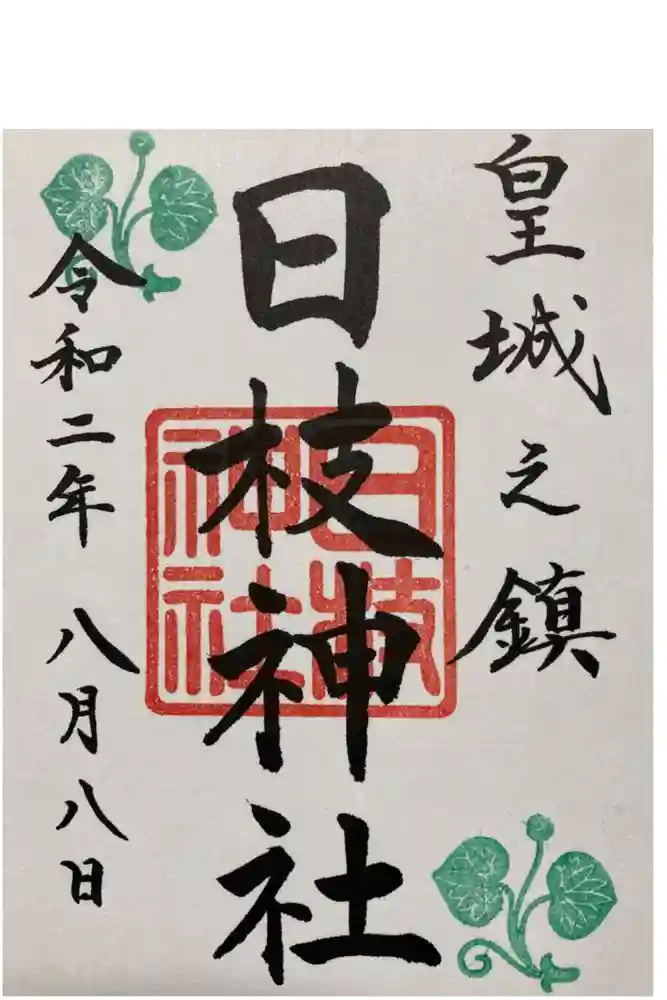 皇城之鎮
日枝神社
日枝神社
令和二年 八月八日